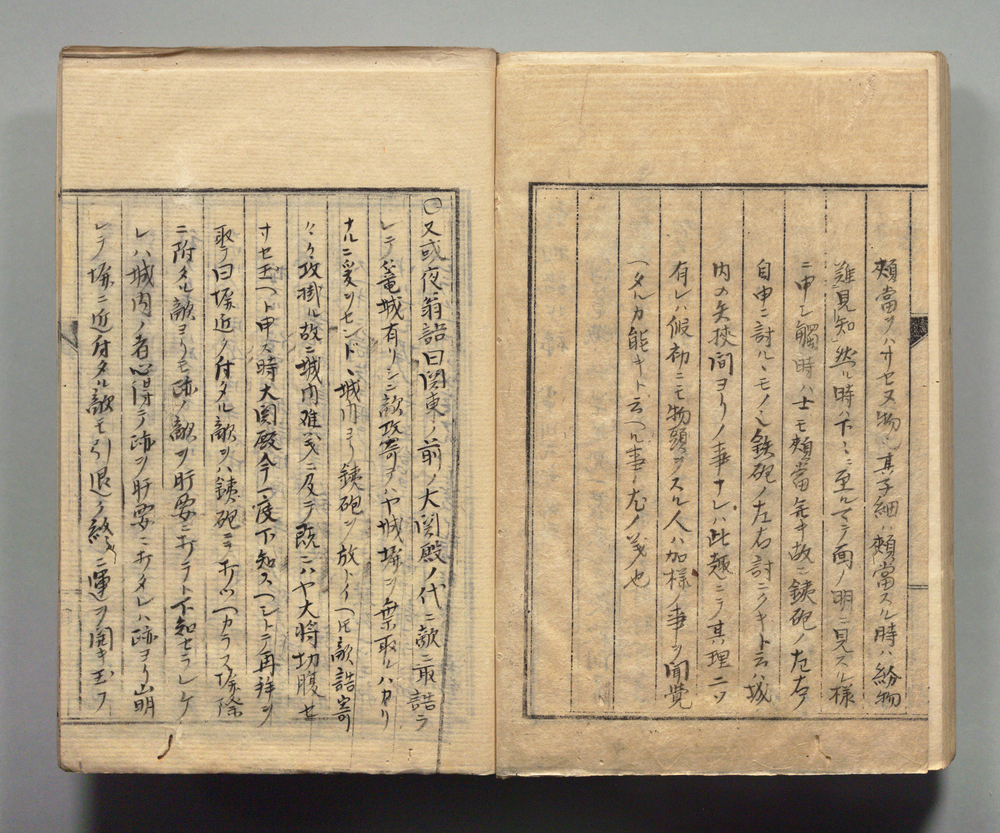 頬當ヲハサセヌ物也其子細ハ頬當スル時ハ紛物
難見知然ル時ハ下々ニ至ルマテ面ノ明ニ見スル様
ニ申シ觸時ハ士モ頬當無キ故ニ鉄砲ノ左右ヲ
自申ニ討ルヽモノ也鉄砲ノ左右討ニクキト云ハ城
内ノ矢挾間ヨリノ事ナレハ此趣ニテ其理二ツ
有レハ假初ニモ物頭ヲスル人ハ加様ノ事ヲ聞覺
ヘタルカ能キト云ヘル事尤ノ義也
○又或夜翁語曰関東ノ前ノ大関殿ノ代ニ敵ニ取詰ラ
レテ篭城有リシニ敵攻寄ヲハヤ城塀ヲ乗取ルハカリ
ナルニ爰ヲセンドヽ城内ヨリ鉄砲ヲ放トイヘ𪜈敵詰寄
々々攻掛ル故ニ城内难義ニ及テ既ニハヤ大将切腹サ
サセ玉ヘト申ス時大関殿今一度下知スヘシトテ再拜ヲ
取テ曰塀近ク付タル敵ヲハ鉄砲ニテ打ツヘカラス塀際
ニ附タル敵ヨリモ跡ノ敵ヲ肝要ニ打テト下知セラレケ
レハ城内ノ者心得テ跡ヲ肝要ニ打タレハ跡ヨリ山明
レテ塀ニ近付タル敵モ引退テ終ニ運ヲ開キ玉フ